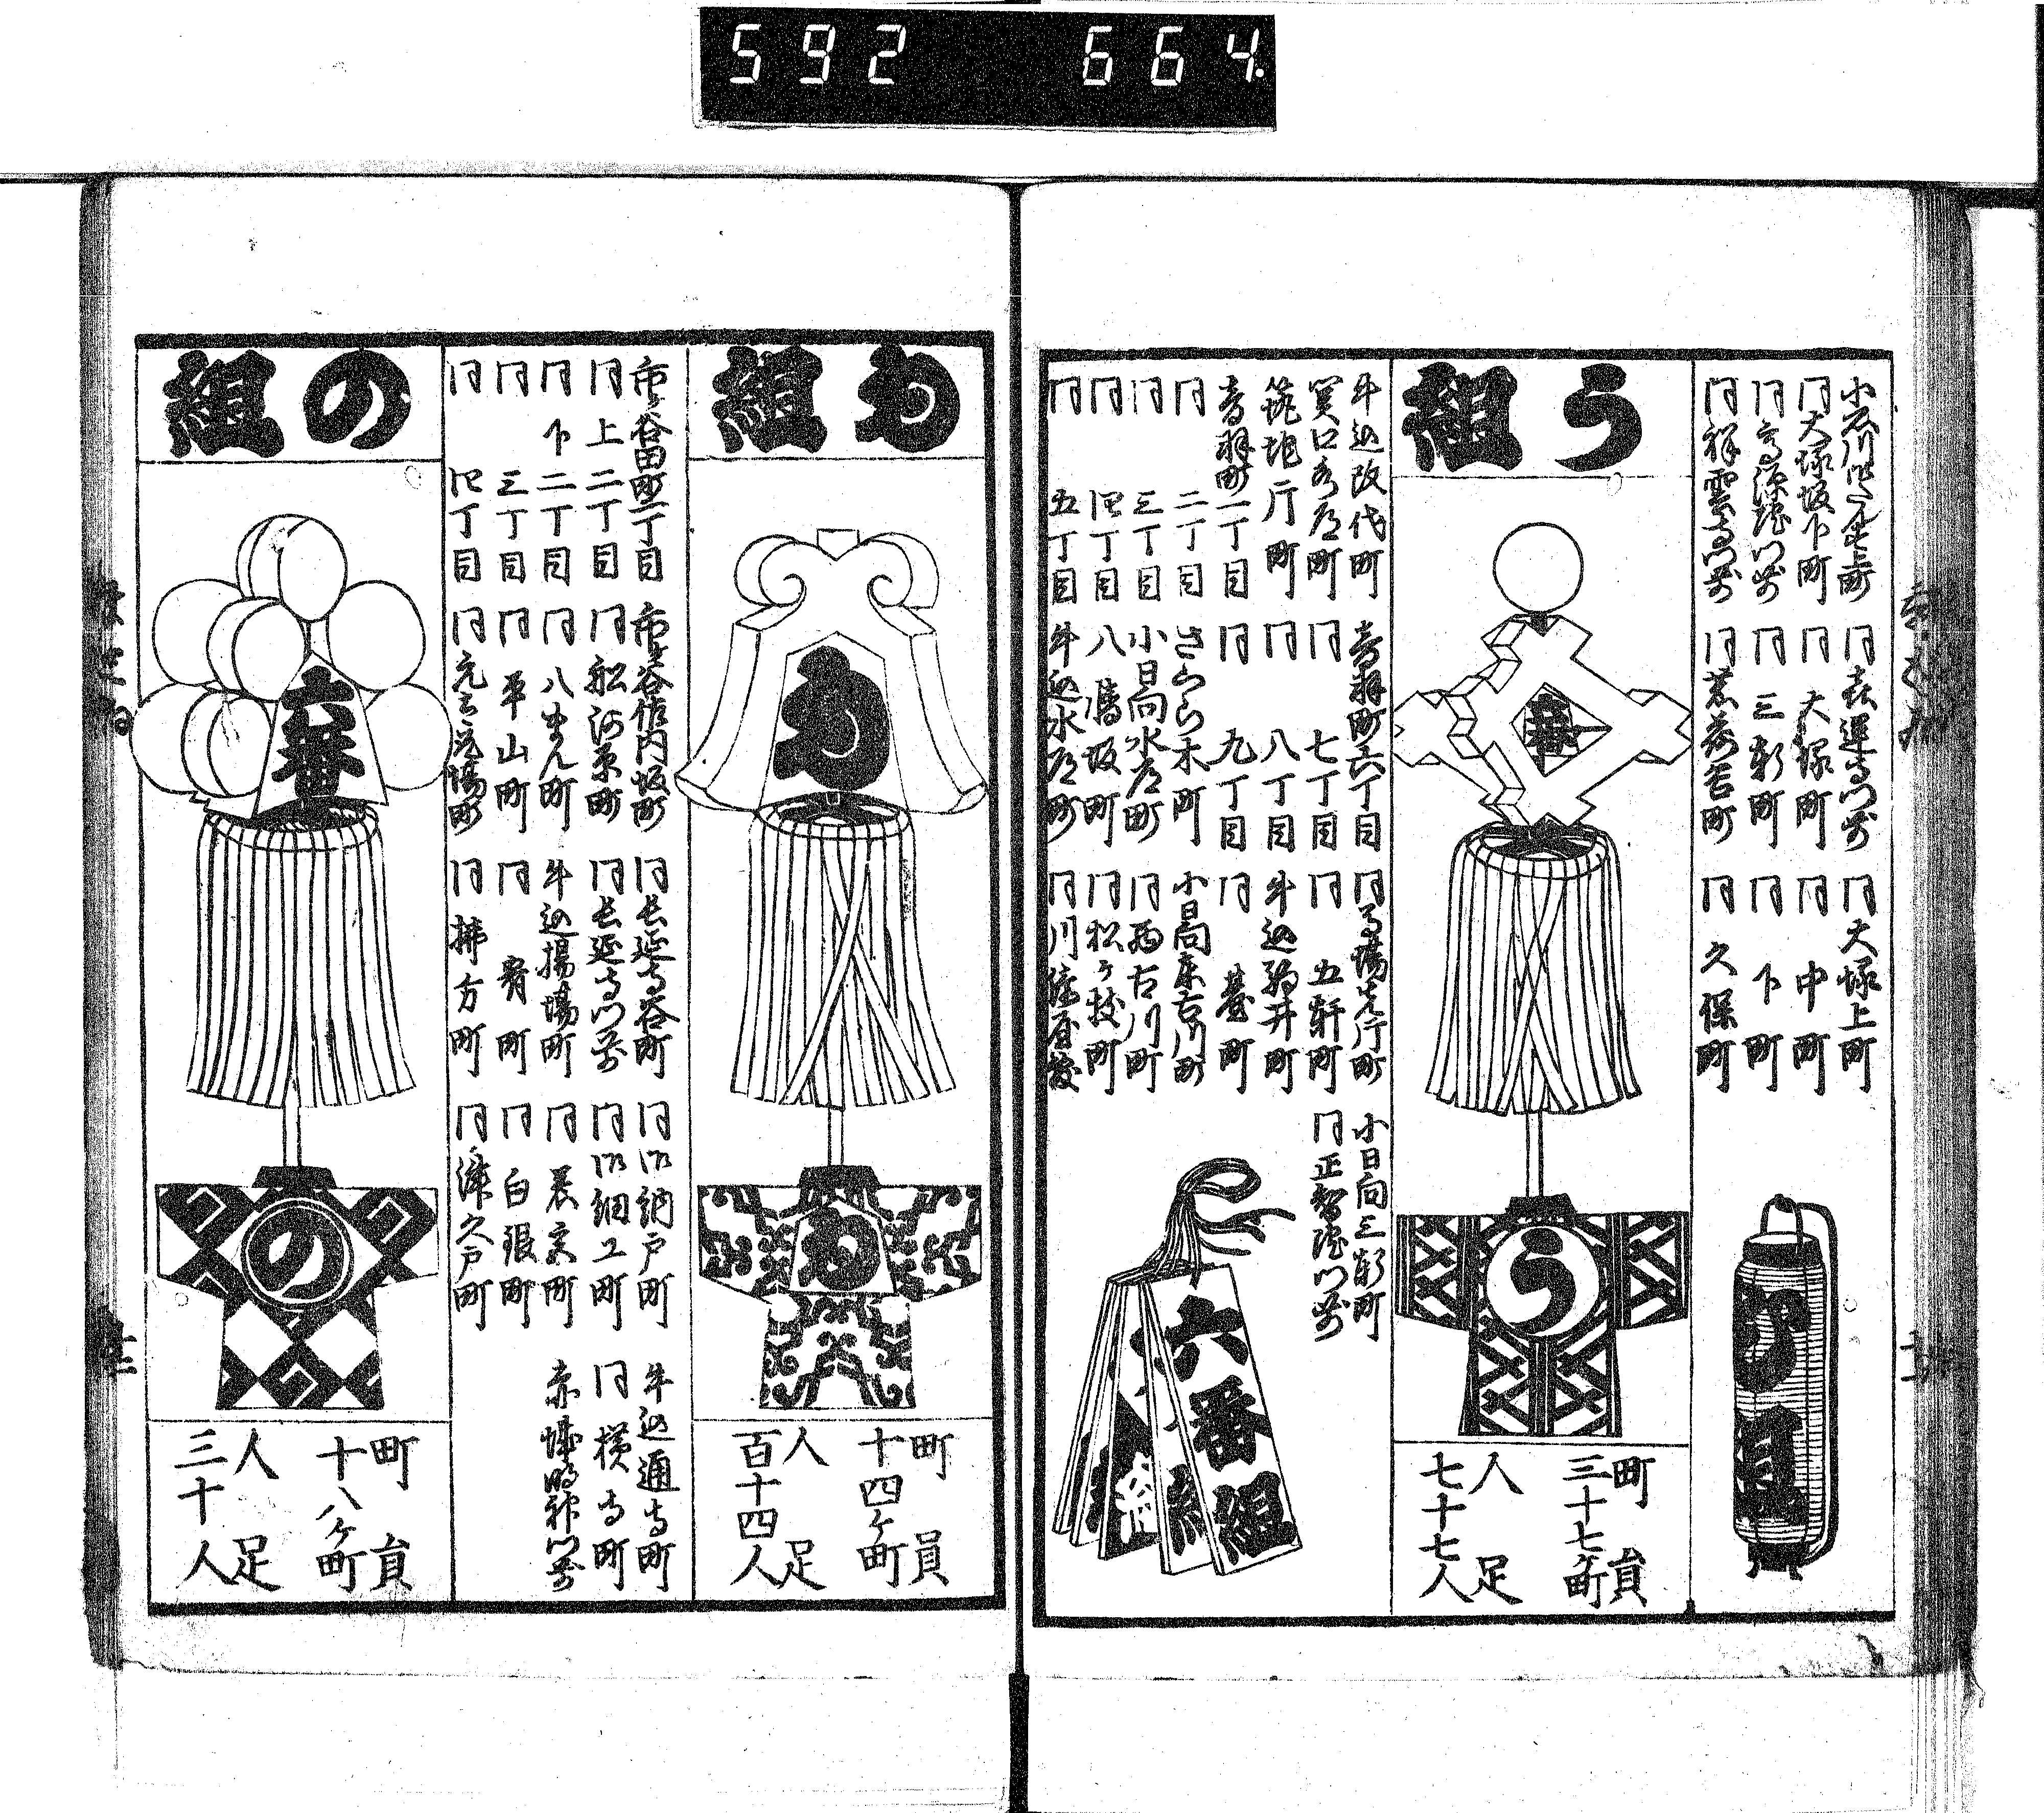 592 664.
大塚坂下町
同祥雲寺門前
同大塚町
同三軒町
同茗荷谷町
同大塚上町
同中町
同下町
同久保町
う組
町員
三十七ケ町
人足
七十七人
牛込改代町
関口水道町
筑地片町
音羽町一丁目
同二丁目
同三丁目
同四丁目
同五丁目
音羽町六丁目
同七丁目
同八丁目
同九丁目
さくら木町
小日向水道町
同五軒町
同臺町
小日向東古川町
同西古川町
同松ケ枝町
牛込水道町
小日向三軒町
同正智院門前
六番組
ゐ組
ゐ
町員
十四ケ町
人足
百十四人
市ケ谷田町一丁目
同上二丁目
同下二丁目
同三丁目
同四丁目
市ケ谷佐内坂町
同船河原町
同八まん町
同平山町
同長延寺谷町
同長延寺門前
牛込揚場町
同肴町
同拂方町
同御納戸町
同御細工町
同白銀町
同津久戸町
牛込通寺町
同横寺町
赤城明神門前
の組
六番
の
町員
十八ケ町
人足
三十人